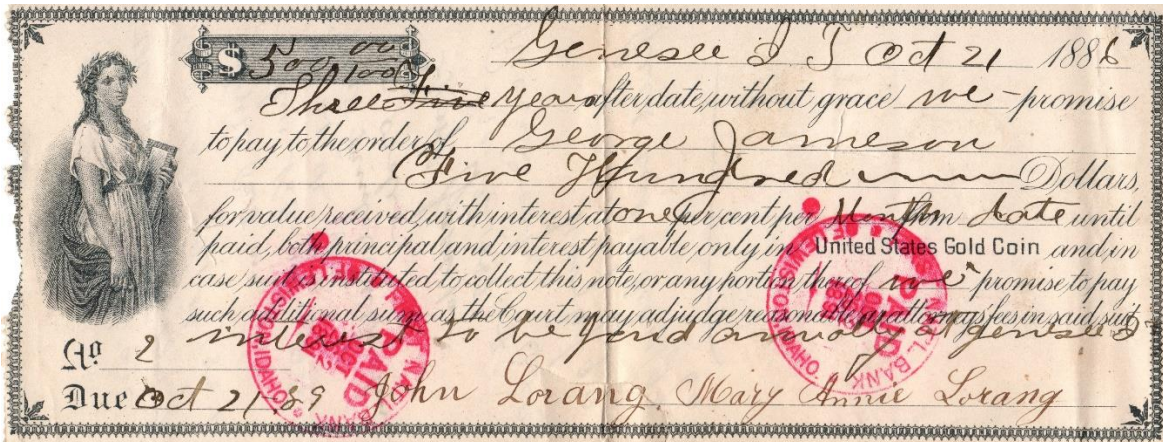 $ 500 00/100 Genesee I T Oct 21 1886
Three Five years after date, without grace we promise
to pay to the order of George Jameson
Five Hundred Dollars,
for value received, with interest at one per cent per Month from date until
paid, both principal and interest payable only in United States Gold Coin and in
case suit is instituted to collect this note, or any portion thereof, we promise to pay
such additional sum, as the Court may adjudge reasonable, as attorneys fees in said suit
No 2 interest to be paid annually at Genesee
Due Oct 21 89 John Lorang Mary Annie Lorang
FIRST NAT'L BANK OF LEWISTON, IDAHO
PAID
OCT
FIRST NAT'L BANK OF LEWISTON, IDAHO
PAID